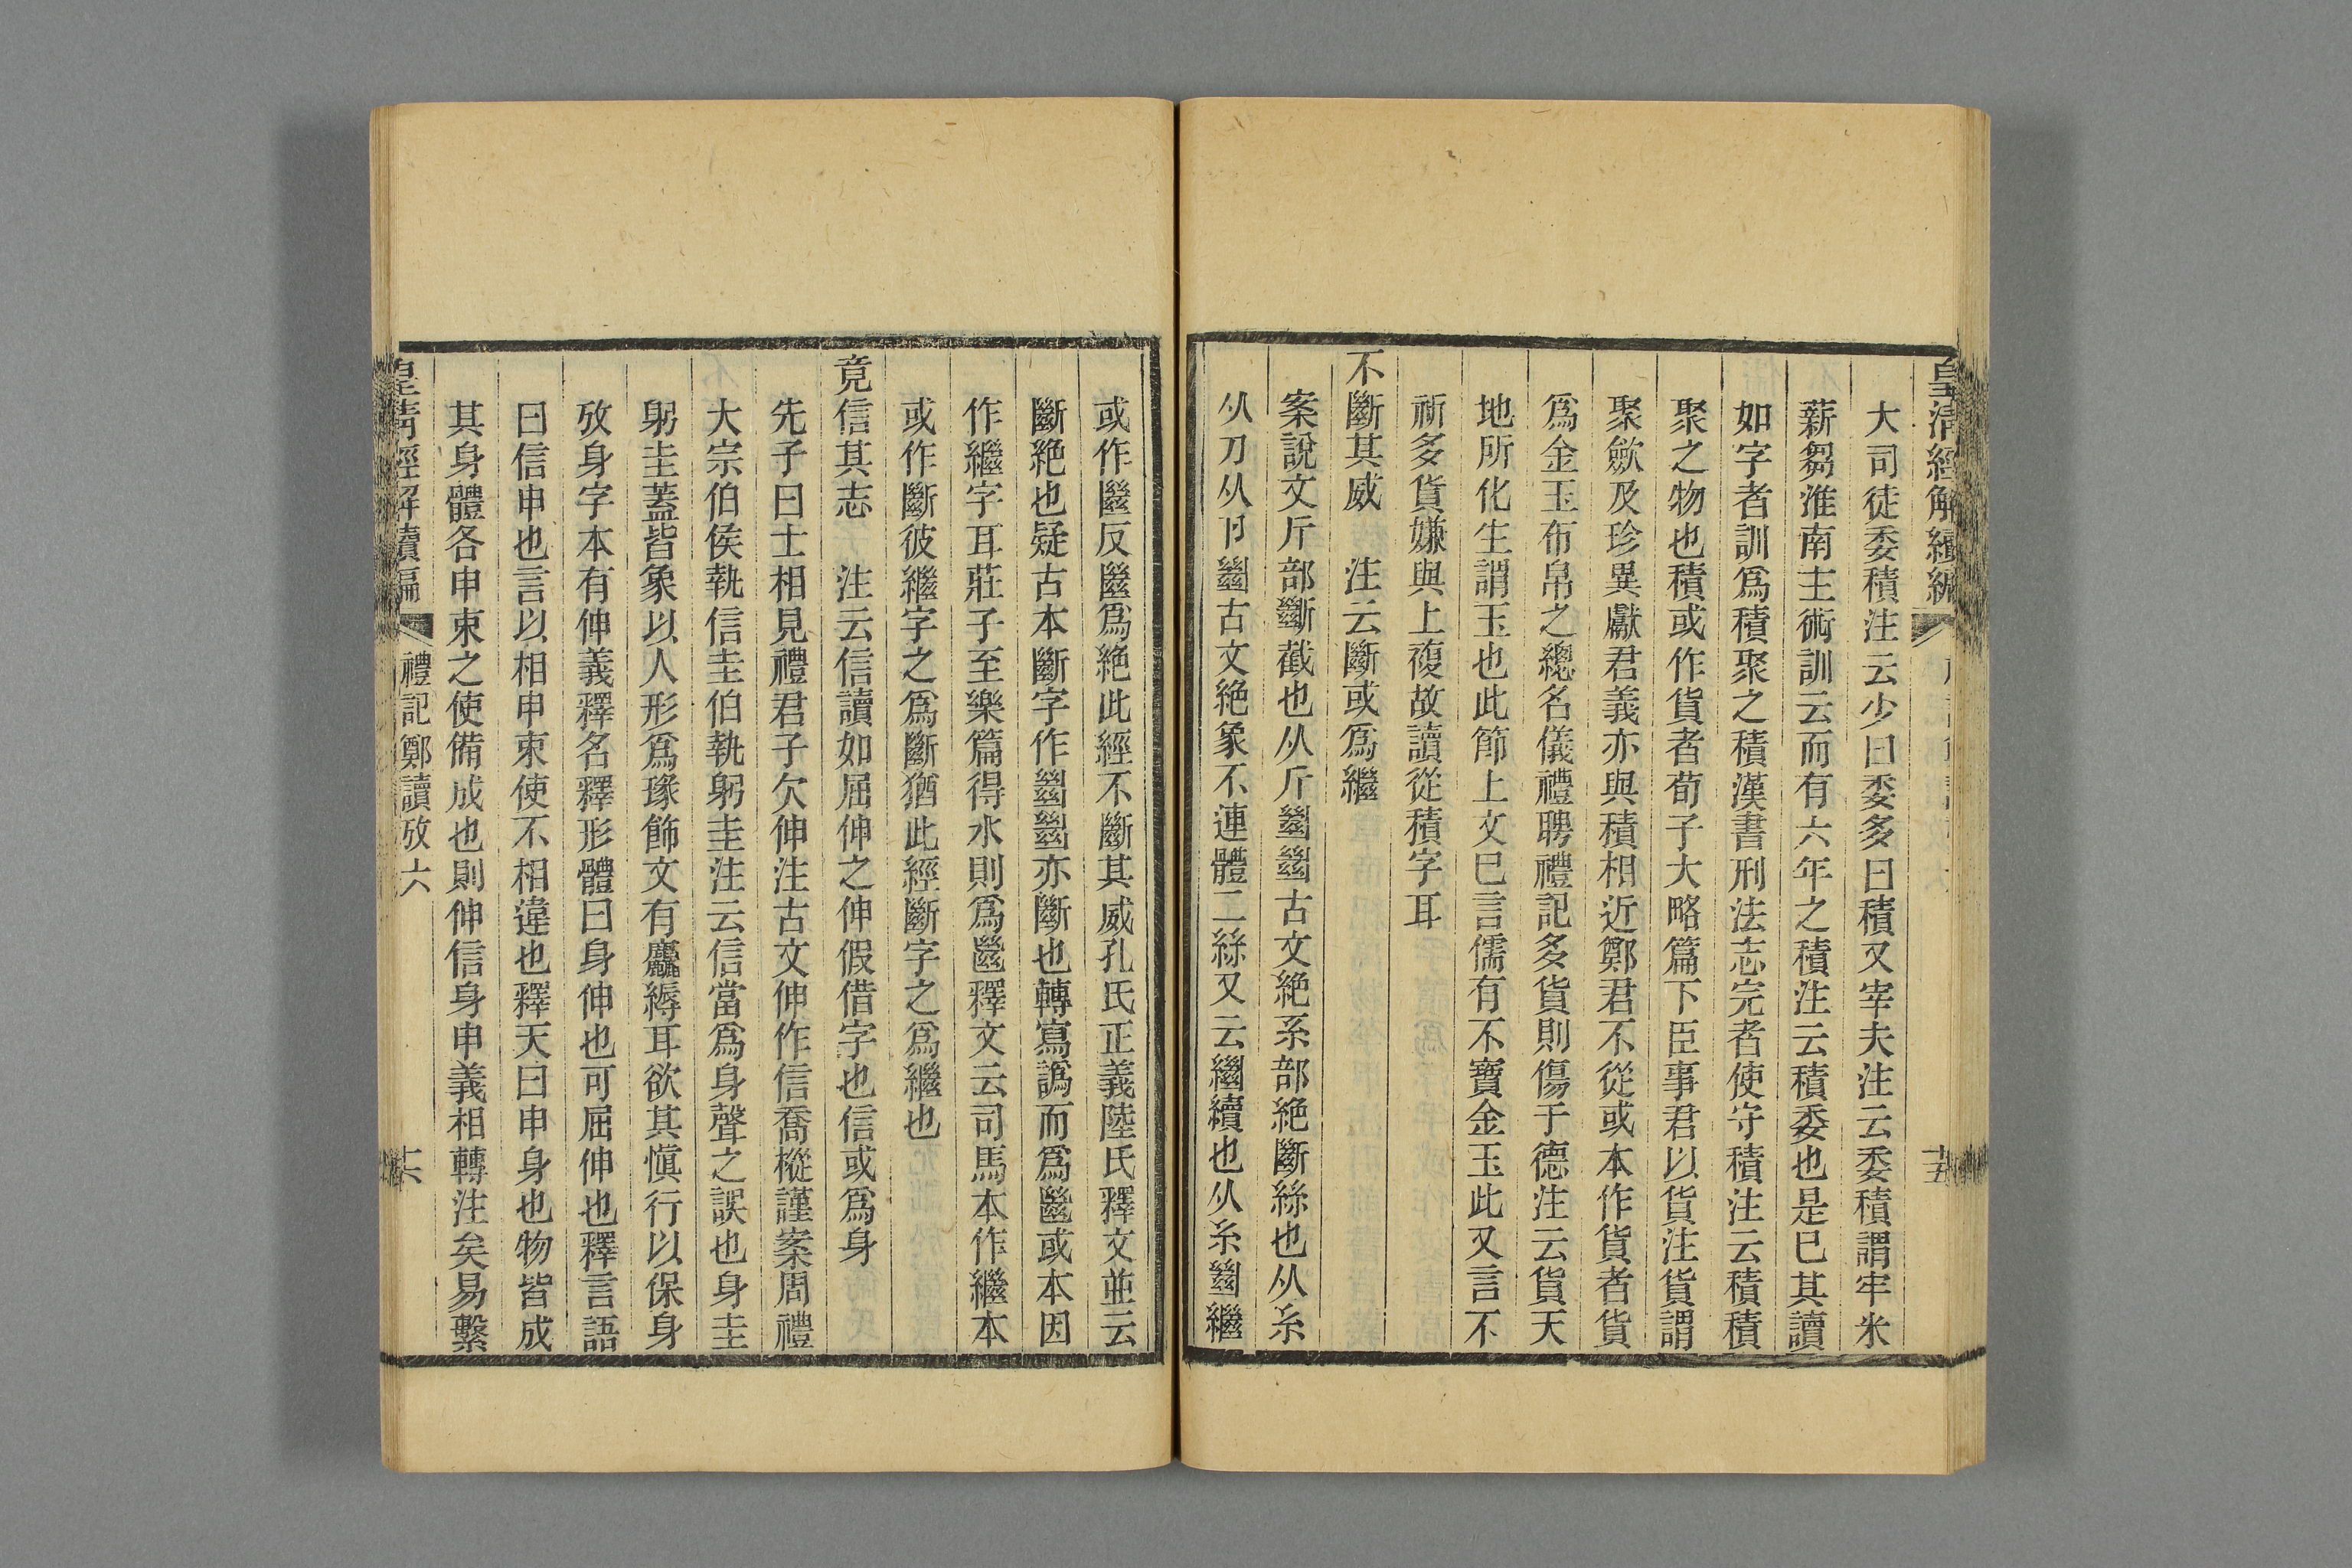 皇清經解續編
大司徒委積注云少曰委多曰積又宰夫注云委積謂牢米
薪芻淮南主術訓云而有六年之積注云積委也是已其讀
如字者訓爲積聚之積漢書刑法志完者使守積注云積積
聚之物也積或作貨者荀子大略篇下臣事君以貨注貨謂
聚歛及珍異獻君義亦與積相近鄭君不從或本作貨者貨
爲金玉布帛之總名儀禮聘禮記多貨則傷于德注云貨天
地所化生謂玉也此節上文巳言儒有不寶金玉此又言不
祈多貨嫌與上複故讀從積字耳
不斷其威　注云斷或爲繼
案說文斤部斷截也从斤𢇍𢇍古文絕系部絕斷絲也从糸
从刀从卪𢇍古文絕象不連體二絲又云繼續也从糸𢇍繼
或作㡭反㡭爲絕此經不斷其威孔氏正義陸氏釋文並云
斷絕也疑古本斷字作𢇍𢇍亦斷也轉寫譌而爲㡭或本因
作繼字耳莊子至樂篇得水則爲㡭釋文云司馬本作繼本
或作斷彼繼字之爲斷猶此經斷字之爲繼也
竟信其志　注云信讀如屈伸之伸假借字也信或爲身
先子曰士相見禮君子欠伸注古文伸作信喬樅謹案周禮
大宗伯侯執信圭伯執躬圭注云信當爲身聲之誤也身圭
躬圭蓋皆象以人形爲瑑飾文有麤縟耳欲其愼行以保身
攷身字本有伸義釋名釋形體曰身伸也可屈伸也釋言語
曰信申也言以相申束使不相違也釋天曰申身也物皆成
其身體各申束之使備成也則伸信身申義相轉注矣易繫
皇清經解續編　禮記鄭讀攷六　十六